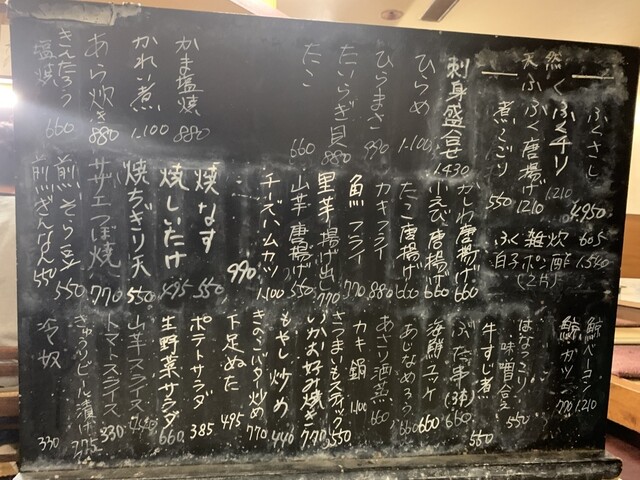 天然ふく
ふくさし 4,950
ふくチリ 1,210
ふく唐揚げ 1210
煮こごり 550
ふく雑炊 605
白子ポン酢 1,540
(2ヶ)
刺身盛合せ 1430
ひらめ 1.100
ひらまさ 990
たいらぎ貝 880
たこ 660
かま塩焼 880
かれい煮 1.100
あら炊き 880
きんたろう塩焼 660
かしわ唐揚げ 660
小えび唐揚げ 660
たこ唐揚げ 660
カキフライ 880
魚フライ 770
里芋揚げ出し 770
山芋唐揚げ 550
チーズハムカツ 1.100
990
焼なす 550
焼しいたけ 495
焼ぢぎり天 550
サザエつぼ焼 770
煎そら豆 550
煎ぎんなん 550
鯨ベーコン 1.210
鯨カツ 770
はなっこりー味噌合え 550
牛すじ煮 550
ぶた串(3本) 660
海鮮ユッケ 660
あじなめろう 660
あさり酒蒸 660
カキ鍋 1.100
さつまいもスティック 550
いかお好み焼き 770
もやし炒め 440
きのこバター炒め 770
下足ぬた 495
ポテトサラダ 385
生野菜サラダ 660
山芋スライス 440
トマトスライス 330
きゅうりビール漬け 275
冷奴 330